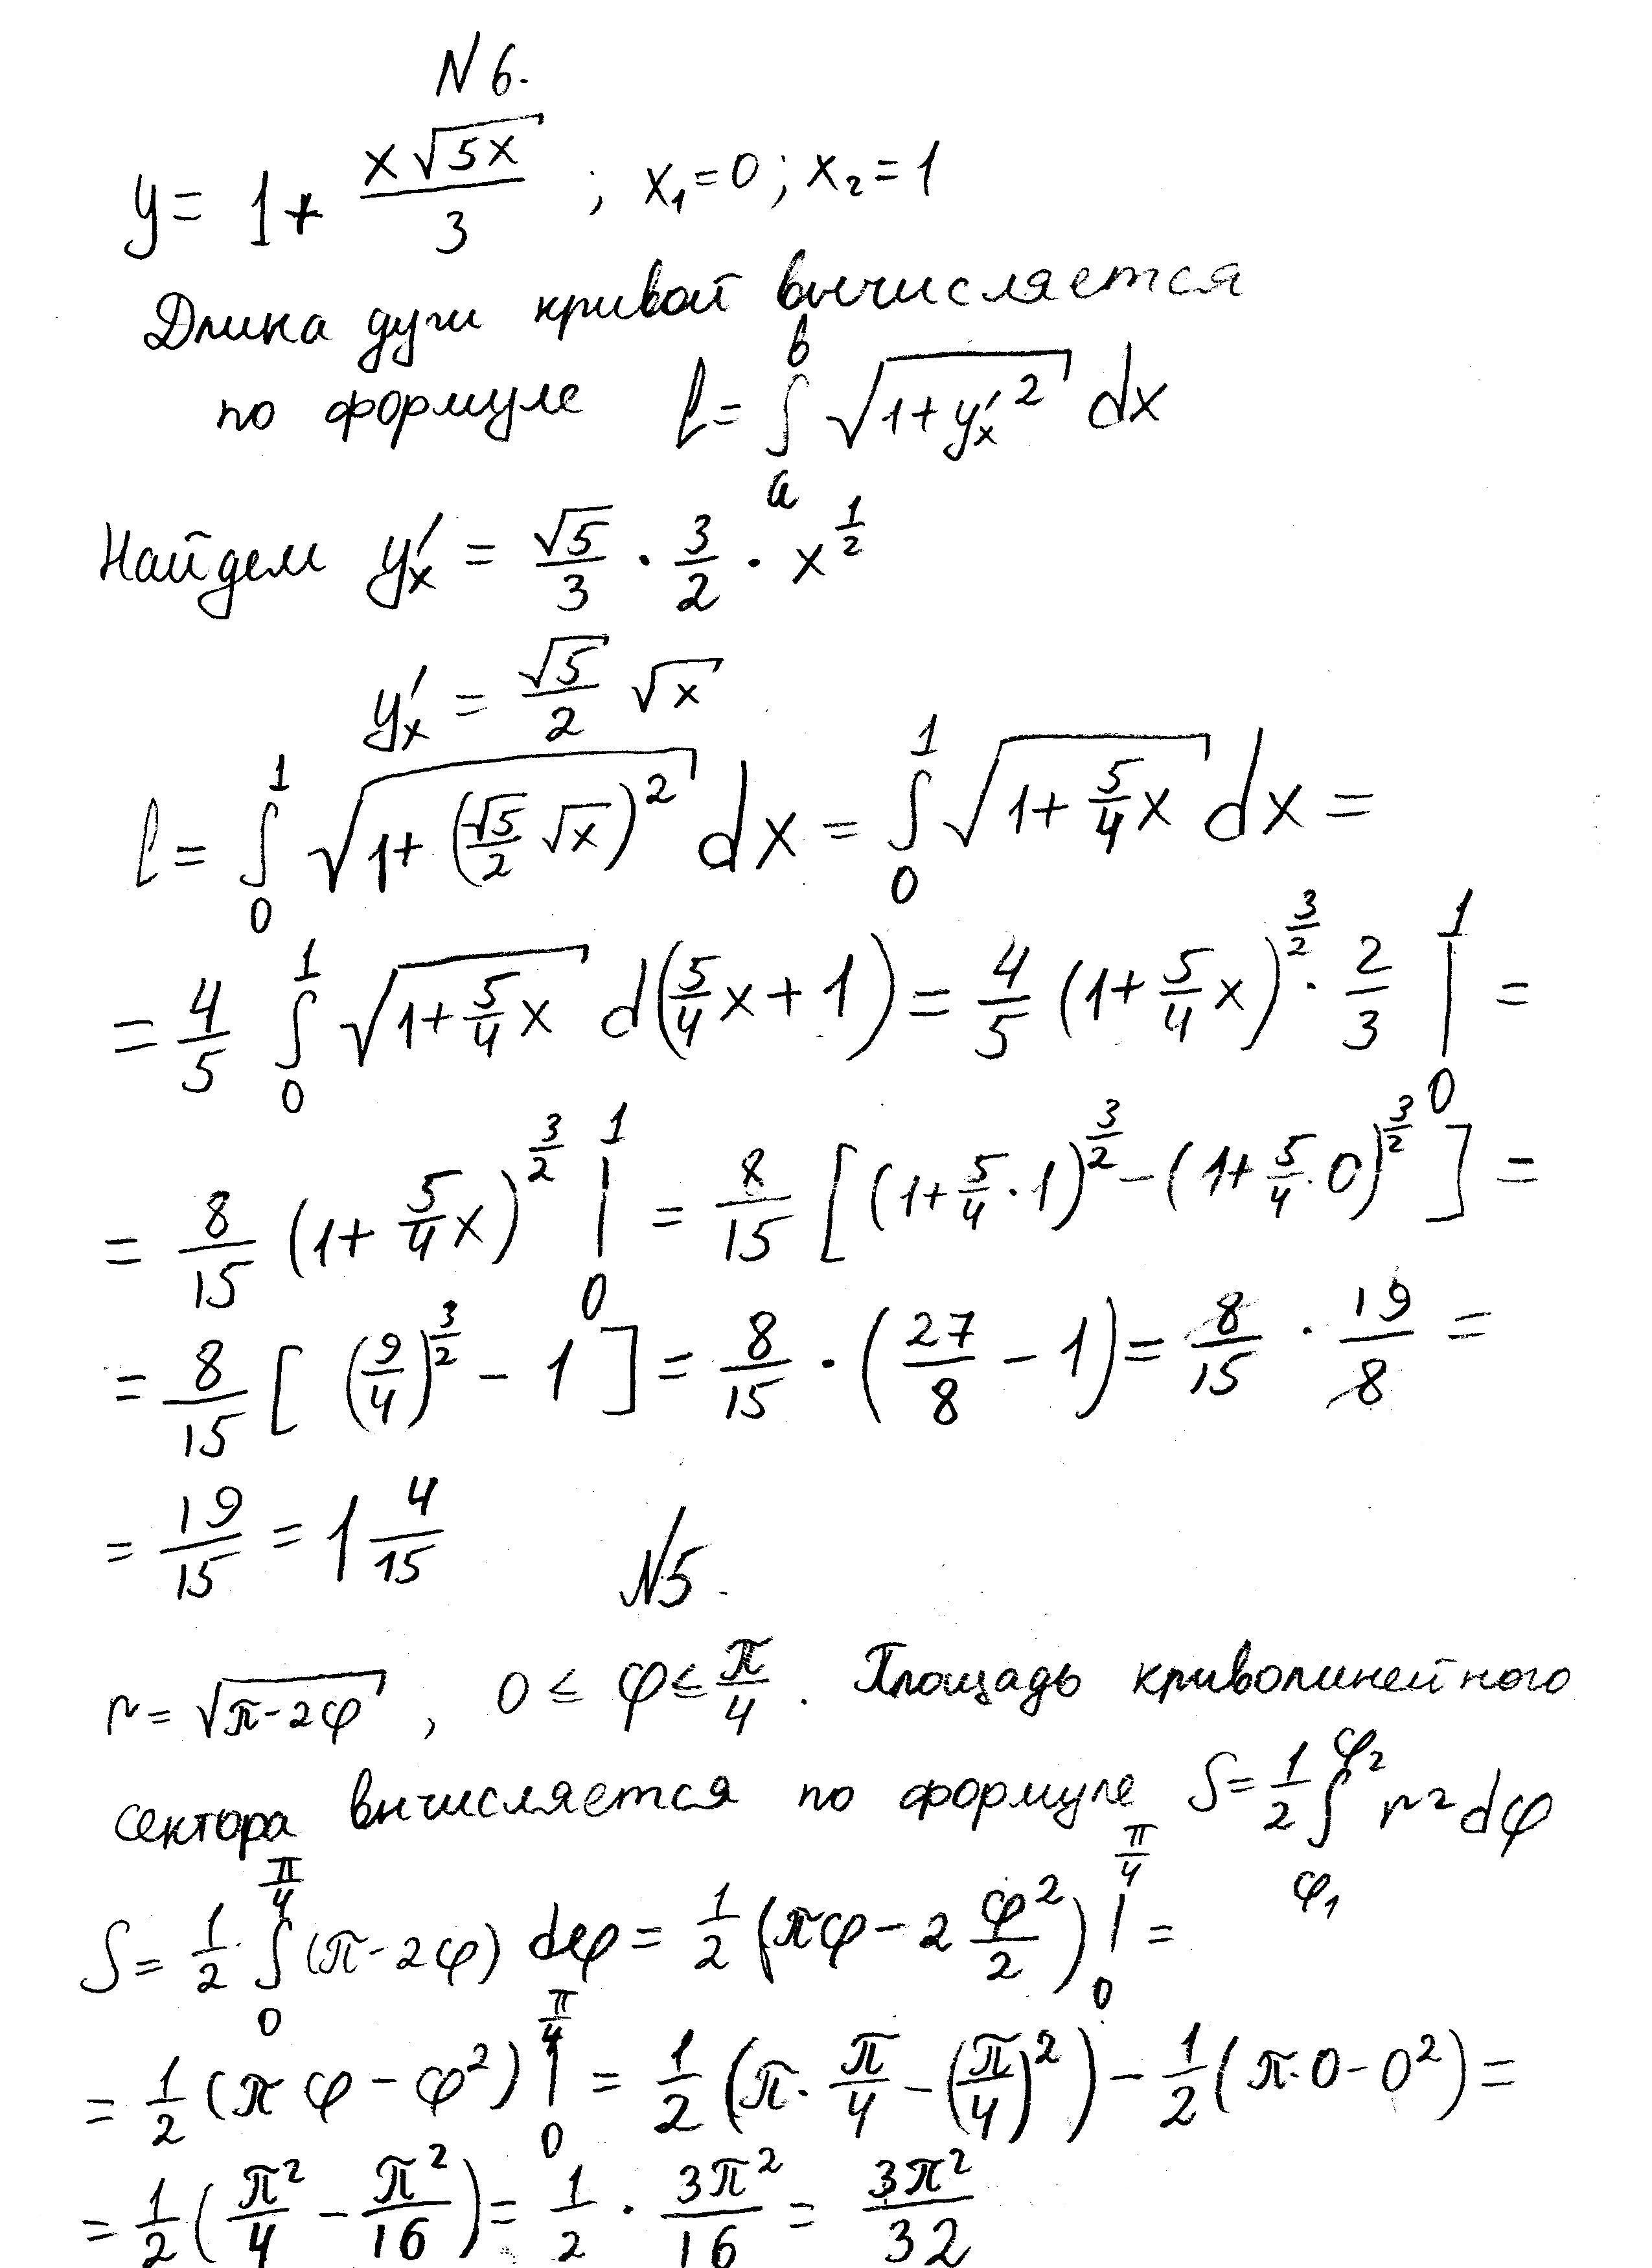 N 6.
y = 1 + x√(5x)/3 ; x₁=0 ; x₂=1
Длина дуги кривой вычисляется
по формуле l = ∫ₐᵇ √(1+y'ₓ²) dx
Найдем y'ₓ = √5/3 · 3/2 · x^(1/2)
y'ₓ = √5/2 √x
l = ∫₀¹ √(1+(√5/2 √x)²) dx = ∫₀¹ √(1+5/4x) dx =
= 4/5 ∫₀¹ √(1+5/4x) d(5/4x+1) = 4/5 (1+5/4x)^(3/2) · 2/3 |₀¹ =
= 8/15 (1+5/4x)^(3/2) |₀¹ = 8/15 [(1+5/4·1)^(3/2) − (1+5/4·0)^(3/2)] =
= 8/15 [(9/4)^(3/2) − 1] = 8/15 · (27/8 − 1) = 8/15 · 19/8 =
= 19/15 = 1 4/15
N5.
r = √(π-2φ), 0 ≤ φ ≤ π/4. Площадь криволинейного
сектора вычисляется по формуле S = 1/2 ∫_φ₁^φ₂ r² dφ
S = 1/2 · ∫₀^(π/4) (π-2φ) dφ = 1/2 (πφ − 2 φ²/2) |₀^(π/4) =
= 1/2 (πφ − φ²) |₀^(π/4) = 1/2 (π · π/4 − (π/4)²) − 1/2 (π·0 − 0²) =
= 1/2 (π²/4 − π²/16) = 1/2 · 3π²/16 = 3π²/32